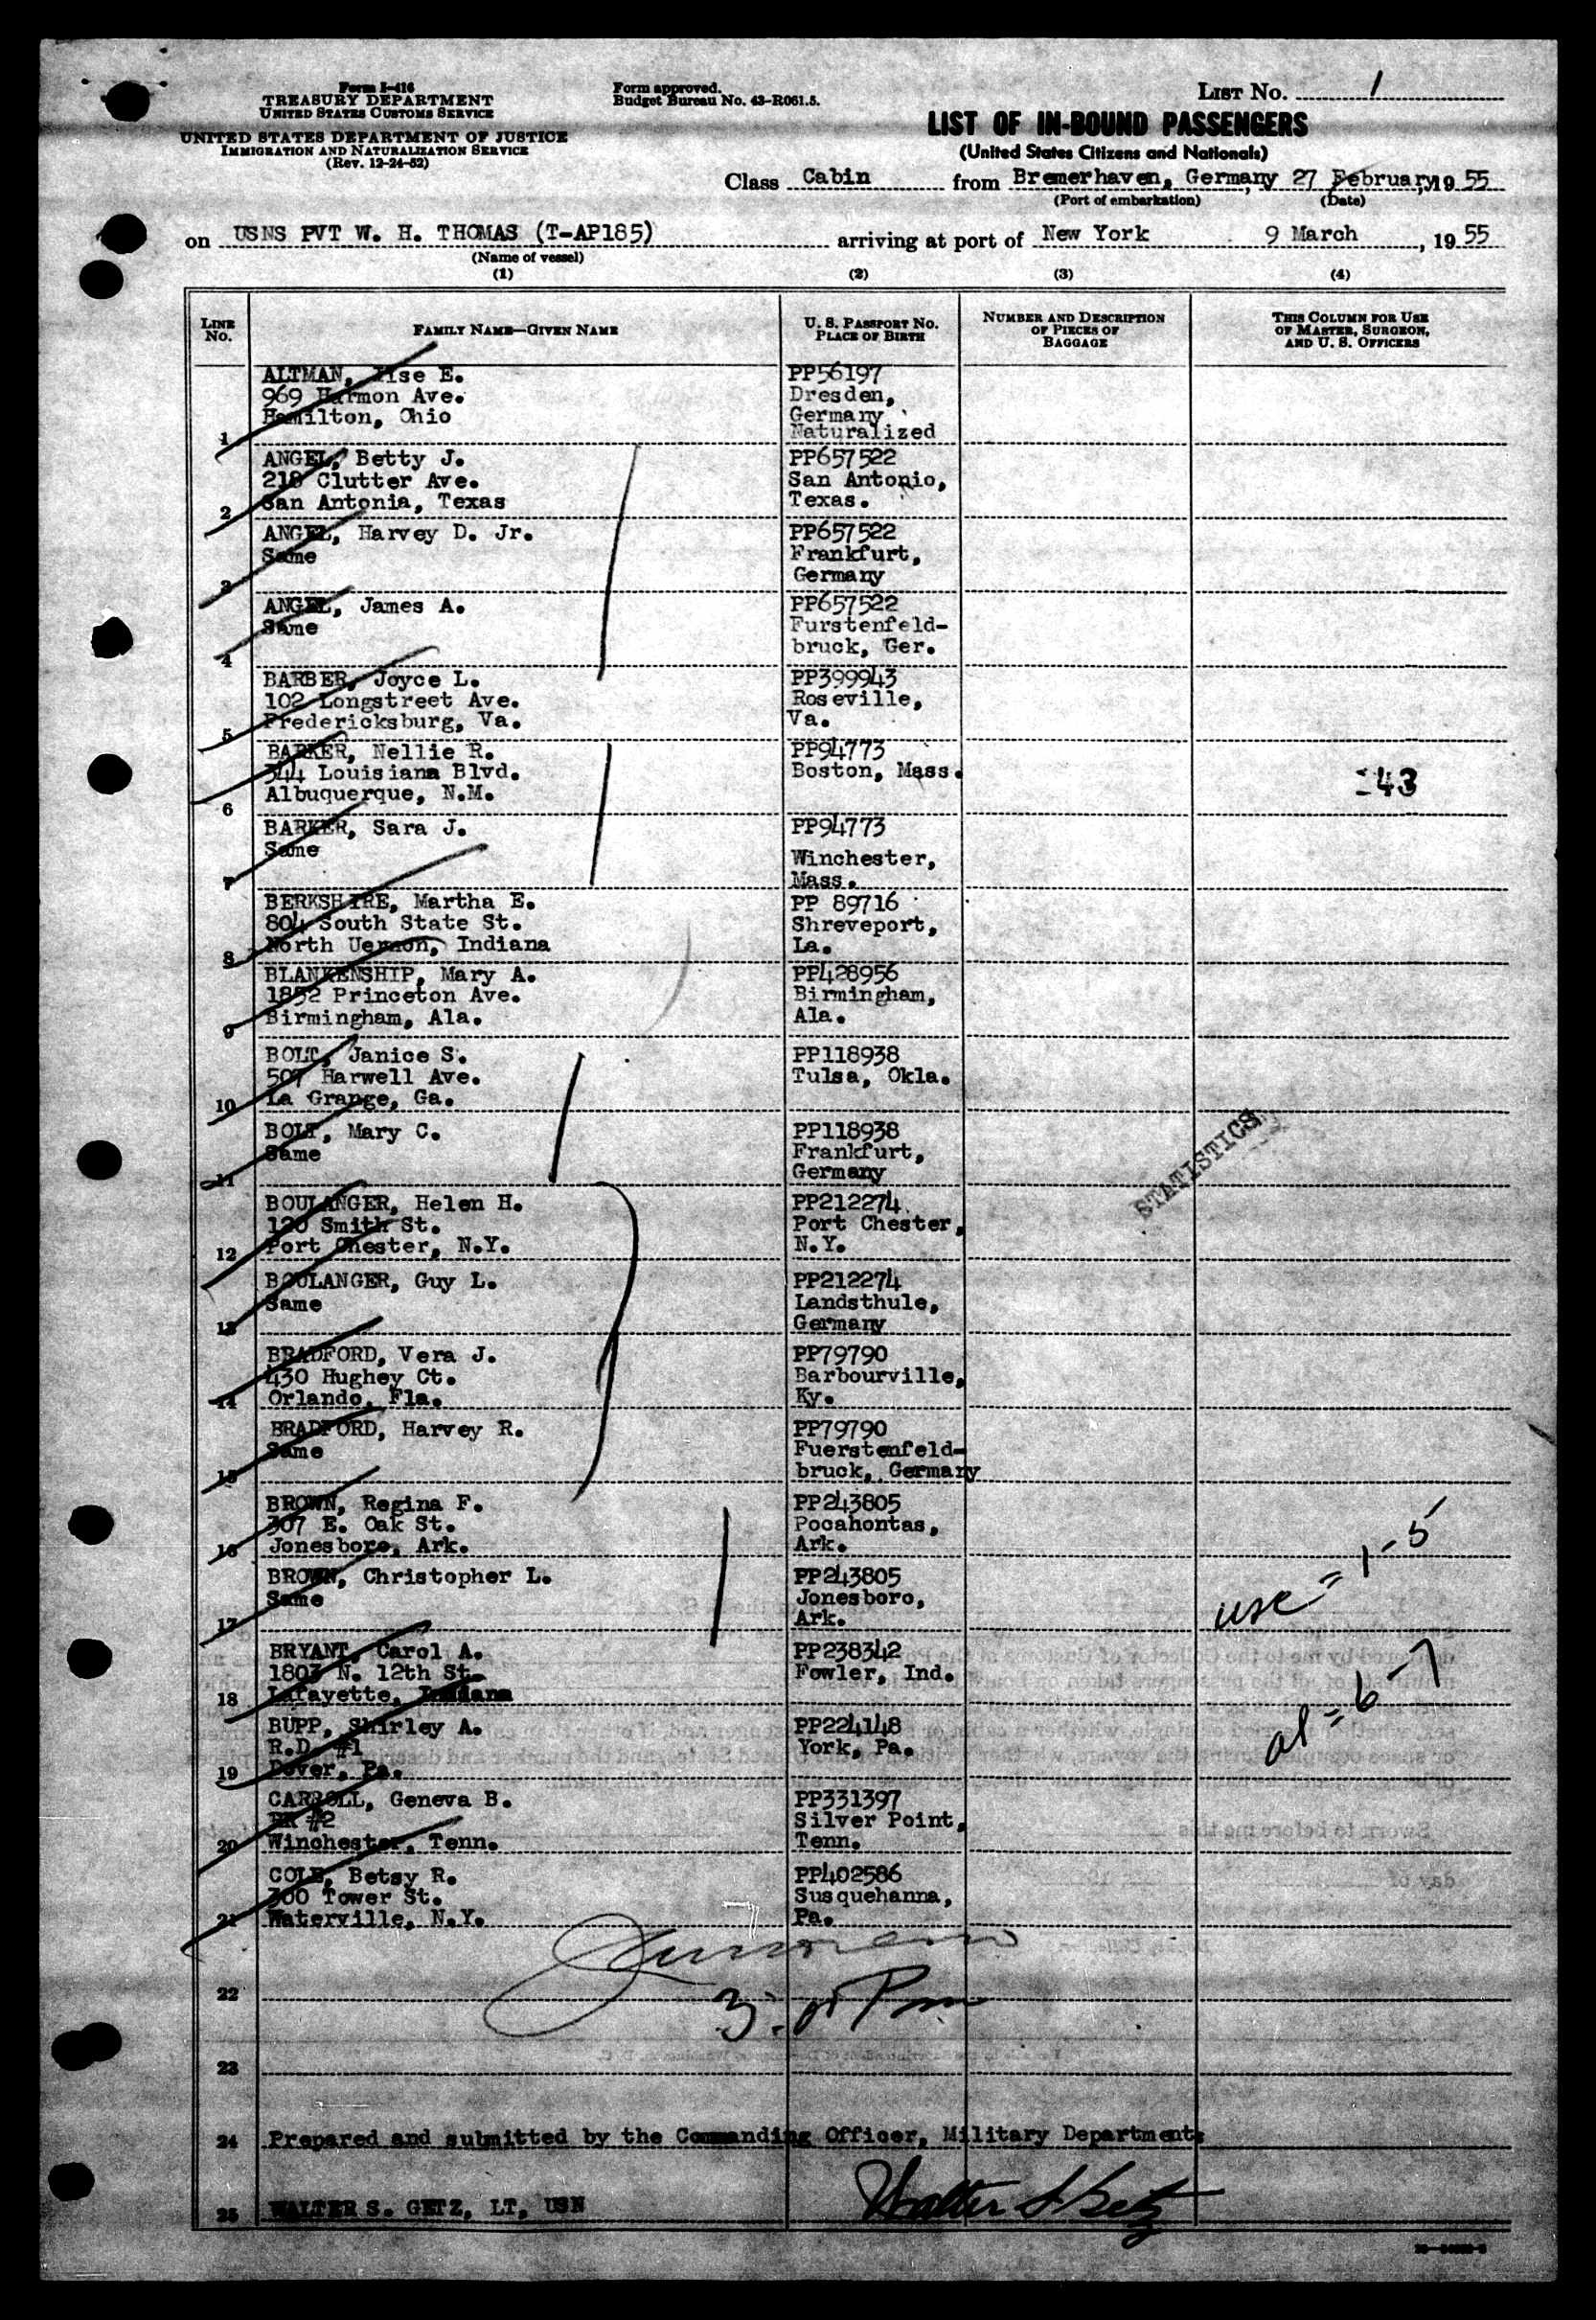 Form I-416
TREASURY DEPARTMENT
UNITED STATES CUSTOMS SERVICE
UNITED STATES DEPARTMENT OF JUSTICE
IMMIGRATION AND NATURALIZATION SERVICE
(Rev. 12-24-52)
Form approved.
Budget Bureau No. 43-R061.5.
LIST NO. 1
LIST OF IN-BOUND PASSENGERS
(United States Citizens and Nationals)
Class Cabin from Bremerhaven, Germany, 27 February, 1955
(Port of embarkation) (Date)
on USNS PVT W. H. THOMAS (T-AP185) arriving at port of New York 9 March, 1955
(Name of vessel)
(1) (2) (3) (4)
LINE NO. FAMILY NAME—GIVEN NAME U. S. PASSPORT NO. PLACE OF BIRTH NUMBER AND DESCRIPTION OF PIECES OF BAGGAGE THIS COLUMN FOR USE OF MASTER, SURGEON, AND U. S. OFFICERS
ALTMAN, Ilse E. PP56197
969 Harmon Ave. Dresden,
Hamilton, Ohio Germany
1 Naturalized
ANGEL, Betty J. PP657522
218 Clutter Ave. San Antonio,
2 San Antonia, Texas Texas.
ANGEL, Harvey D. Jr. PP657522
Same Frankfurt,
3 Germany
ANGEL, James A. PP657522
Same Furstenfeld-
4 bruck, Ger.
BARBER, Joyce L. PP399943
102 Longstreet Ave. Roseville,
5 Fredericksburg, Va. Va.
BARKER, Nellie R. PP94773
344 Louisiana Blvd. Boston, Mass. 43
6 Albuquerque, N.M.
BARKER, Sara J. PP94773
Same Winchester,
7 Mass.
BERKSHIRE, Martha E. PP 89716
804 South State St. Shreveport,
8 North Uernon, Indiana La.
BLANKENSHIP, Mary A. PP428956
1852 Princeton Ave. Birmingham,
9 Birmingham, Ala. Ala.
BOLT, Janice S. PP118938
507 Harwell Ave. Tulsa, Okla.
10 La Grange, Ga.
BOLT, Mary C. PP118938
Same Frankfurt,
11 Germany
STATISTICS
BOULANGER, Helen H. PP212274
120 Smith St. Port Chester,
12 Port Chester, N.Y. N.Y.
BOULANGER, Guy L. PP212274
Same Landsthule,
13 Germany
BRADFORD, Vera J. PP79790
430 Hughey Ct. Barbourville,
14 Orlando, Fla. Ky.
BRADFORD, Harvey R. PP79790
Same Fuerstenfeld-
15 bruck, Germany
BROWN, Regina F. PP243805
307 E. Oak St. Pocahontas,
16 Jonesboro, Ark. Ark.
BROWN, Christopher L. PP243805
Same Jonesboro, usc = 1-5
17 Ark.
BRYANT, Carol A. PP238342
1803 N. 12th St. Fowler, Ind.
18 Lafayette, Indiana
BUPP, Shirley A. PP224148 al = 6-7
R.D. #1 York, Pa.
19 Dover, Pa.
CARROLL, Geneva B. PP331397
RR #2 Silver Point,
20 Winchester, Tenn. Tenn.
COLE, Betsy R. PP402586
300 Tower St. Susquehanna,
21 Waterville, N.Y. Pa.
22
23
24 Prepared and submitted by the Commanding Officer, Military Department:
25 WALTER S. GETZ, LT, USN Walter S Getz